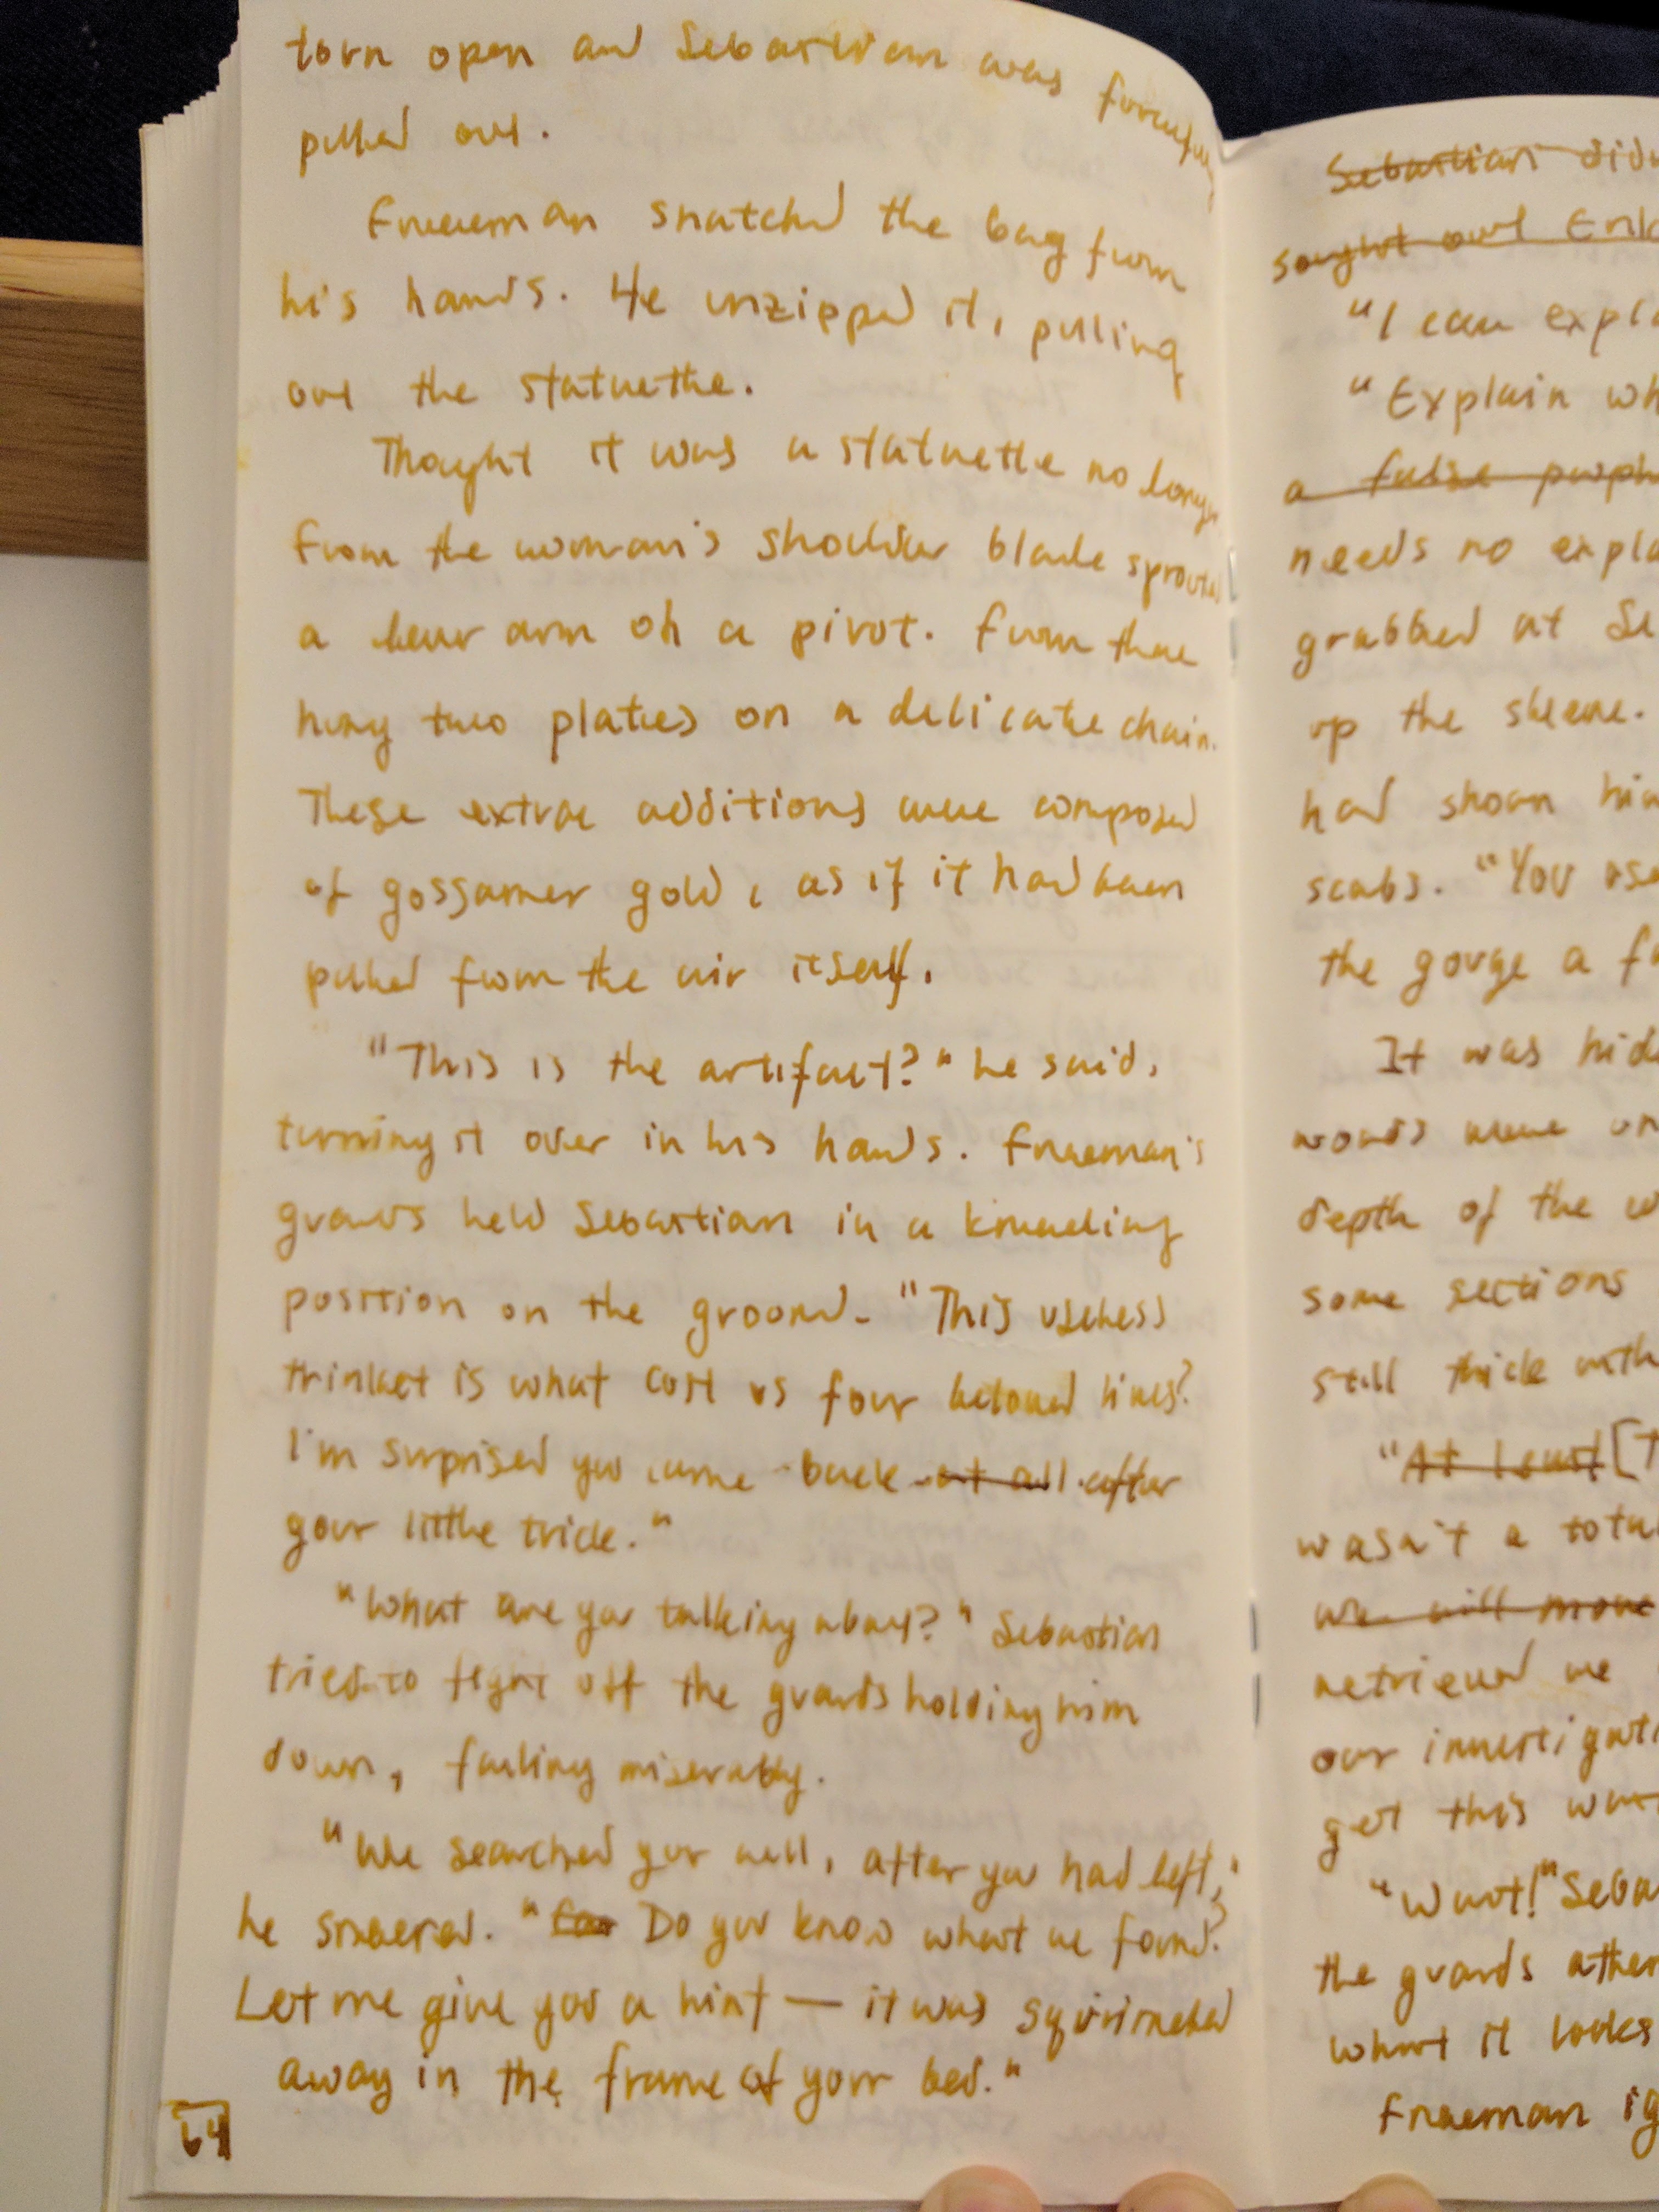 torn open and Sebastian was forcefully
pulled out.
Freeman snatched the bag from
his hands. He unzipped it, pulling
out the statuethe.
Thought it was a statuette no longer
from the woman's shoulder blade sprouted
a lever arm on a pivot. From there
hung two plates on a delicate chain.
These extrae additions were composed
of gossamer gold, as if it had been
pulled from the air itself.
"This is the artifact?" he said,
turning it over in his hands. Freeman's
guards held Sebastian in a kneeling
position on the ground. "This useless
trinket is what cost us four beloved lives?
I'm surprised you came back at all after
your little trick."
"What are you talking about?" Sebastian
tries to fight off the guards holding him
down, failing miserably.
"We searched your cell, after you had left,"
he sneered. " Do you know what we found?
Let me give you a hint — it was squirreled
away in the frame of your bed."
64
Sebastian
sought out
"I can
"Explain
a false
needs no
grabbed at
up the sleeve.
had shown
scabs. "You
the gouge a
It was
words were
depth of the
some sections
still thick with
"At least
wasn't a
we will
retrieved we
our
get this
"What!"
the guards
what it looks
Freeman